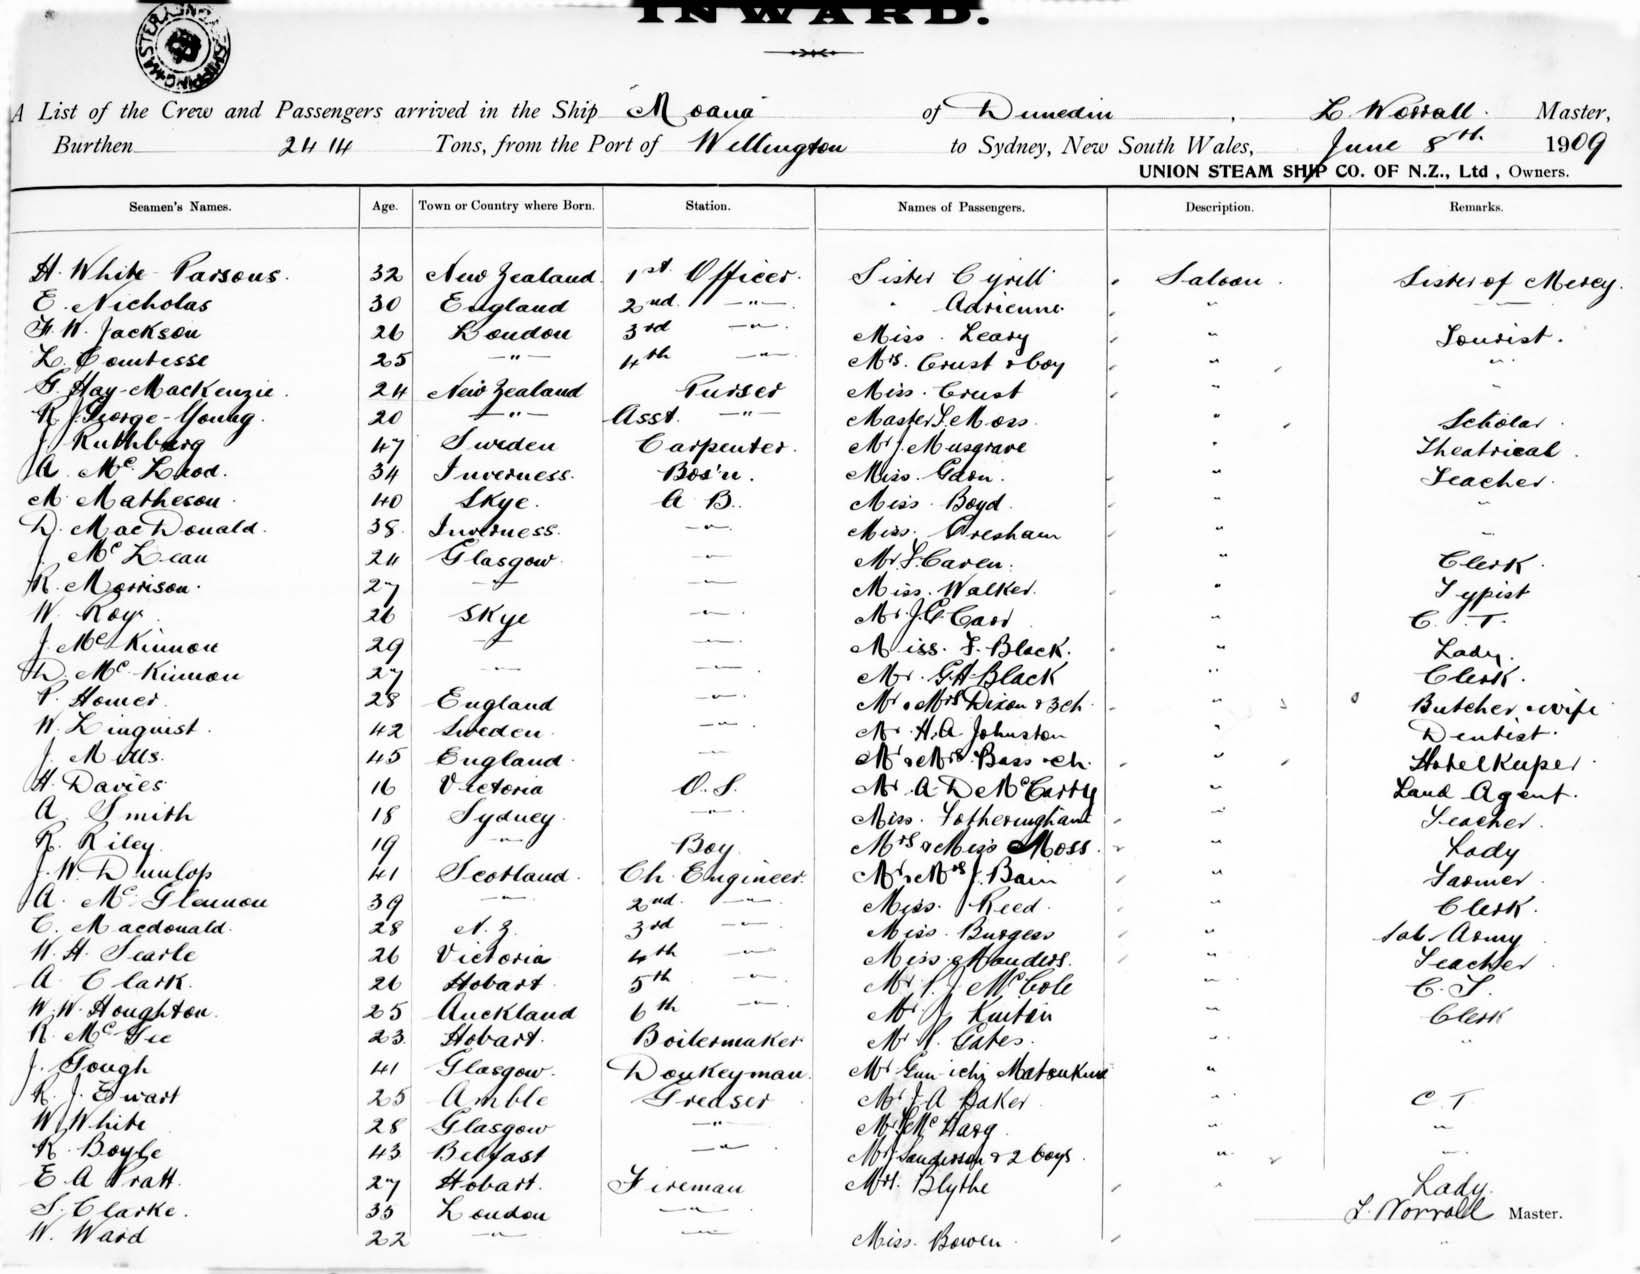 INWARD.
A List of the Crew and Passengers arrived in the Ship Moana of Dunedin, L. Worrall. Master,
Burthen 2414 Tons, from the Port of Wellington to Sydney, New South Wales, June 8th 1909
UNION STEAM SHIP CO. OF N.Z., Ltd, Owners.
Seamen's Names. Age. Town or Country where Born. Station. Names of Passengers. Description. Remarks.
H. White-Parsons. 32 New Zealand 1st Officer. Sister Cyrill Saloon. Sister of Mercy.
E. Nicholas 30 England 2nd -"- " Adrienne " -"-
F. W. Jackson 26 London 3rd -"- Miss. Leary " Tourist.
L. Comtesse 25 -"- 4th -"- Mrs. Crust & boy " "
G. Hay-Mackenzie. 24 New Zealand Purser Miss. Crust " "
R. J. George-Young. 20 -"- Asst. -"- Master S. Moss " Scholar
J. Ruthberg 47 Sweden Carpenter. Mr J. Musgrave " Theatrical.
A. McLeod. 34 Inverness. Bos'n. Miss. " Teacher.
M. Matheson 40 Skye. A B. Miss Boyd " "
D. MacDonald. 38 Inverness. -"- Miss. Gresham " "
J. McLean 24 Glasgow. -"- Mr Caren. " Clerk.
R. Morrison. 27 -"- -"- Miss. Walker. " Typist
W. Roy. 26 Skye -"- Mr. J. G. Carr " C. T.
J. McKinnon 29 -"- -"- Miss. F. Black. " Lady.
D. McKinnon 27 -"- -"- Mr. G H Black " Clerk.
P. Homer. 28 England -"- Mr & Mrs Dixon & 3 ch. " Butcher & wife
W. Linquist. 42 Sweden. -"- Mr. H. A. Johnston " Dentist.
J. Mills. 45 England. -"- Mr & Mrs. Bass & ch. " Hotelkeeper
H. Davies 16 Victoria O. S. Mr A D McCarty " Land Agent.
A. Smith 18 Sydney. -"- Miss. Fotheringham " Teacher.
R. Riley. 19 -"- Boy. Mrs & Miss Moss. " Lady
J. W. Dunlop 41 Scotland. Ch. Engineer. Mr & Mrs J. Bain " Farmer.
A. McGlennon 39 -"- 2nd. -"- Miss. Reed. " Clerk.
C. Macdonald. 28 N. Z. 3rd -"- Miss. Burgess " Sal. Army
W. H. Searle 26 Victoria 4th -"- Miss. Manders. " Teacher
A. Clark. 26 Hobart. 5th -"- Mr. P. J. McCole " C. T.
W. W. Houghton. 25 Auckland 6th -"- Mr J. " Clerk
R. McGee 23. Hobart. Boilermaker Mr. P. Gates. " "
J. Gough 41 Glasgow. Donkeyman. Mr "
R. J. Ewart 25 Amble Greaser Mr J. A Baker " C T.
W. White 28 Glasgow -"- Mr J. McHarg " "
R. Boyle 43 Belfast -"- Mr J Sanderson & 2 boys. " "
E A Pratt. 27 Hobart. Fireman Mrs. Blythe " Lady.
S. Clarke. 35 London -"- L. Worrall Master.
W. Ward 22 -"- -"- Miss. Bowen. "